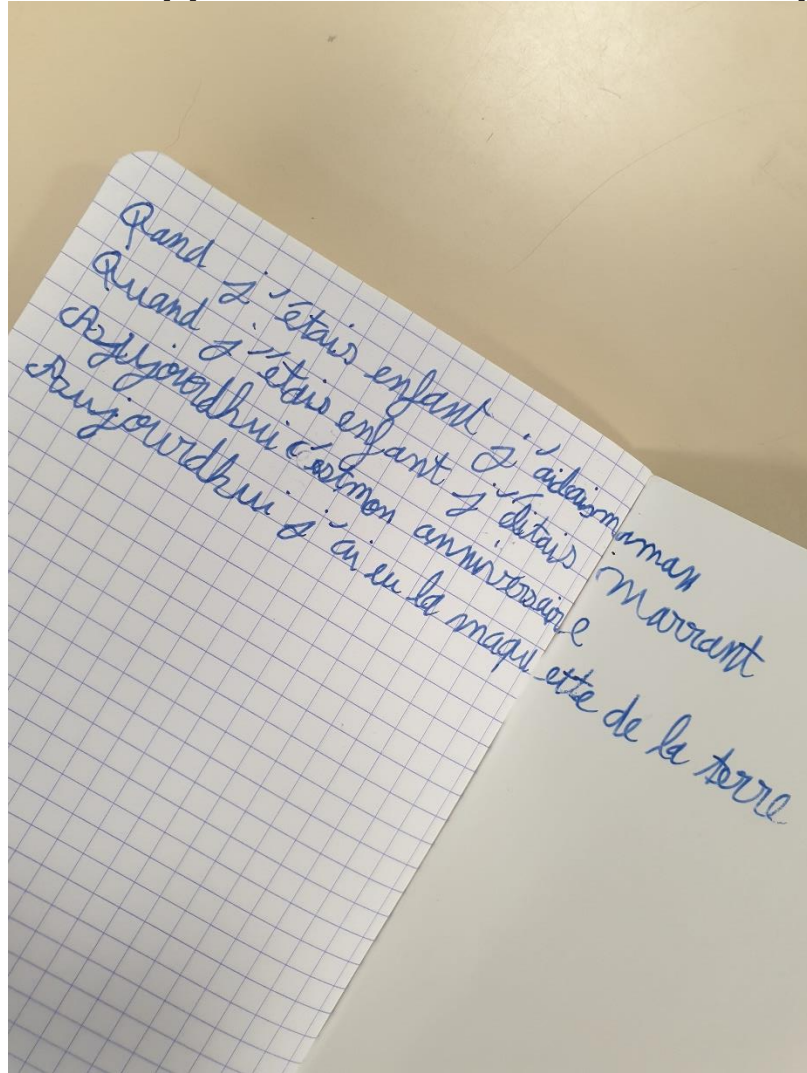 Qand j'étais enfant j'aidais maman
Quand j'étais enfant j'étais Marrant
Aujourdhui c'est mon anniversaire
Aujourdhui j'ai eu la maquette de la terre